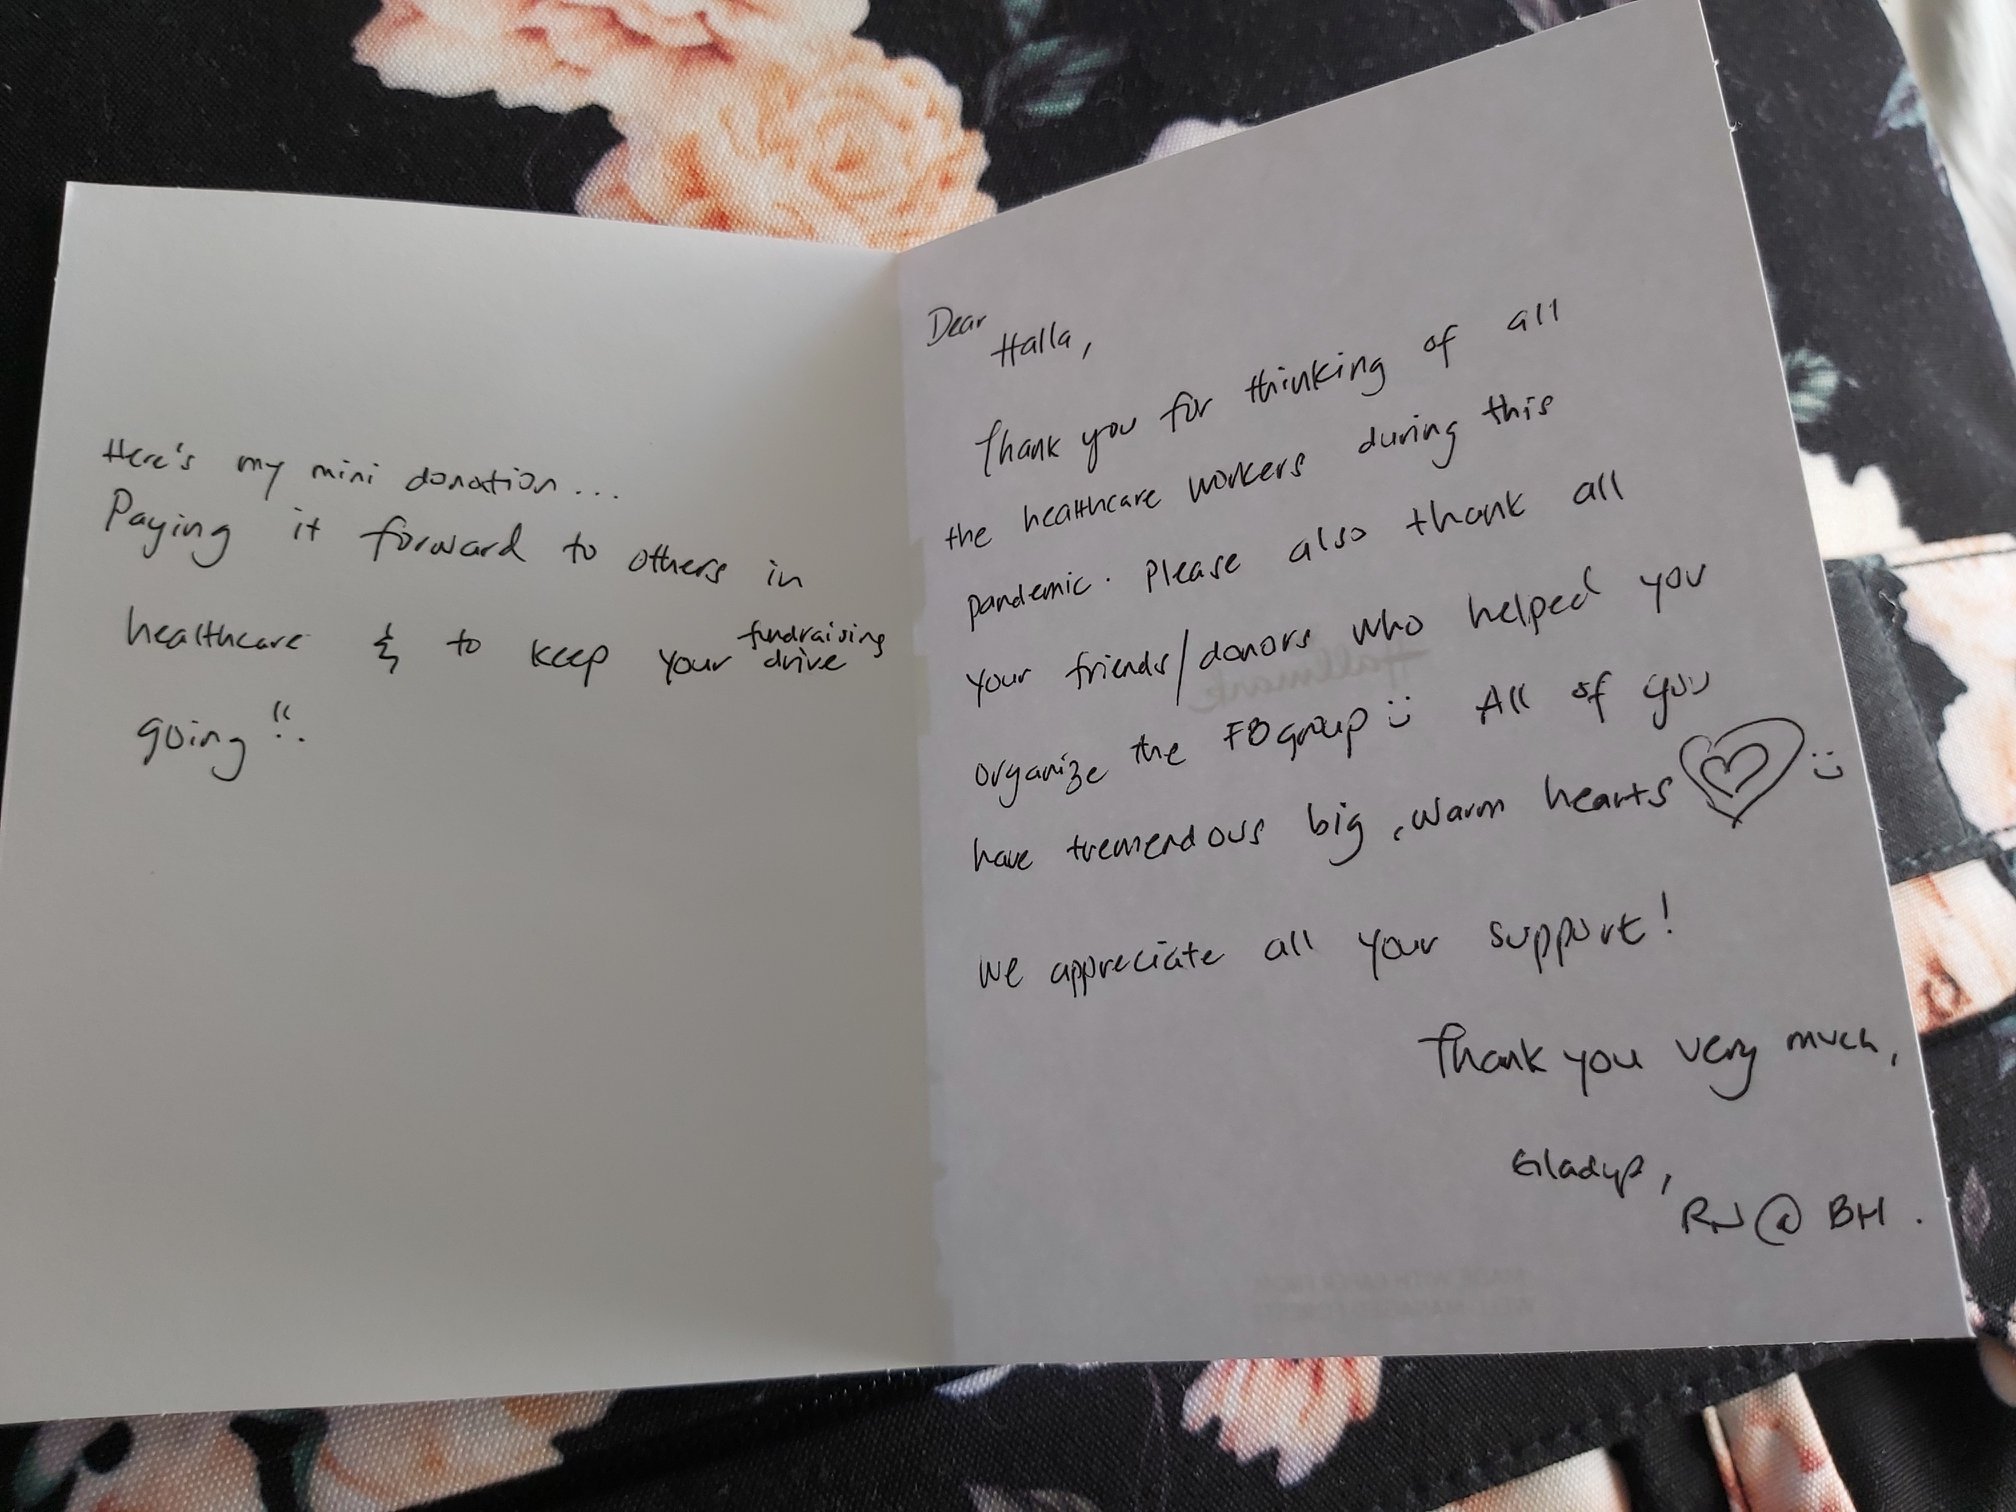 Here's my mini donation...
Paying it forward to others in
healthcare & to keep your fundraising drive
going!!
Dear Halla,
Thank you for thinking of all
the healthcare workers during this
pandemic. Please also thank all
your friends/donors who helped you
organize the FB group :) All of you
have tremendous big, warm hearts :)
We appreciate all your support!
Thank you very much,
Gladys,
RN @ BH.
Hallmark